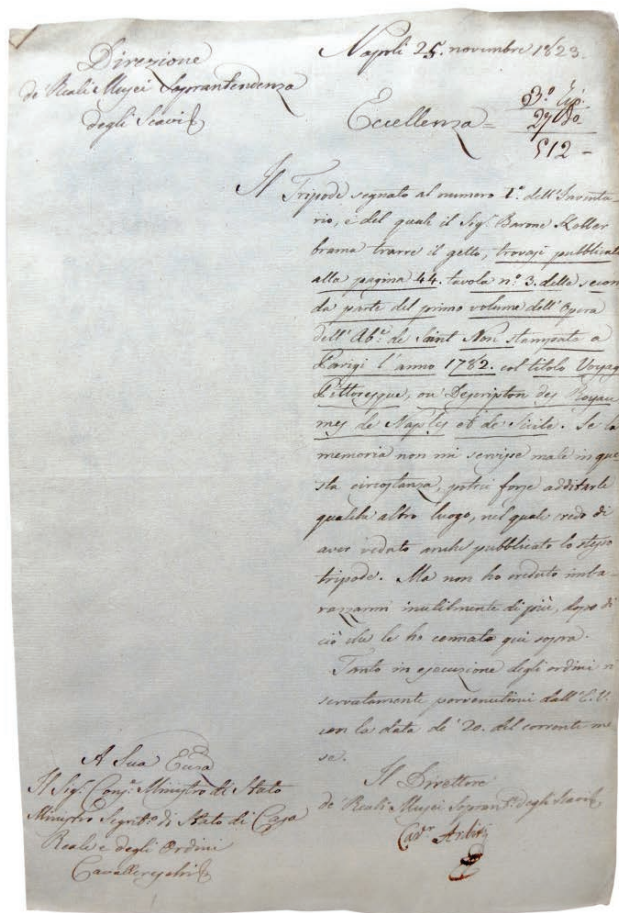 Direzione
de Reali Musei Soprantendenza
degli Scavi
Napoli 25. novembre 1823.
Eccellenza =
3.º
512 -
Il Tripode segnato al numero 1.º dell'Inventa-
rio, e del quale il Sig.r Barone Koller
brama trarre il getto, trovasi pubblicato
alla pagina 44. tavola n.º 3. della secon
da parte del primo volume dell'Opera
dell'Ab.e de Saint Non stampata a
Parigi l'anno 1782. col titolo Voyage
Pittoresque, ou Descripton des Royau
mes de Naples et de Sicile. Se la
memoria non mi servisse male in que
sta circostanza, potrei forse additarle
qualche altro luogo, nel quale credo di
aver veduto anche pubblicato lo stesso
tripode. Ma non ho creduto imba-
razzarmi inutilmente di più, dopo di
ciò che le ho cennato qui sopra.
Tanto in esecuzione degli ordini ri
servatamente pervenutimi dall'E.V.
con la data de' 20. del corrente me
se.
A Sua Ecc.za
Il Sig.r Con.re Ministro di Stato
Ministro Segret.o di Stato di Casa
Reale e degli Ordini
Cavallereschi
Il Direttore
de Reali Musei Sopran.te degli Scavi
Cav.r Arditi